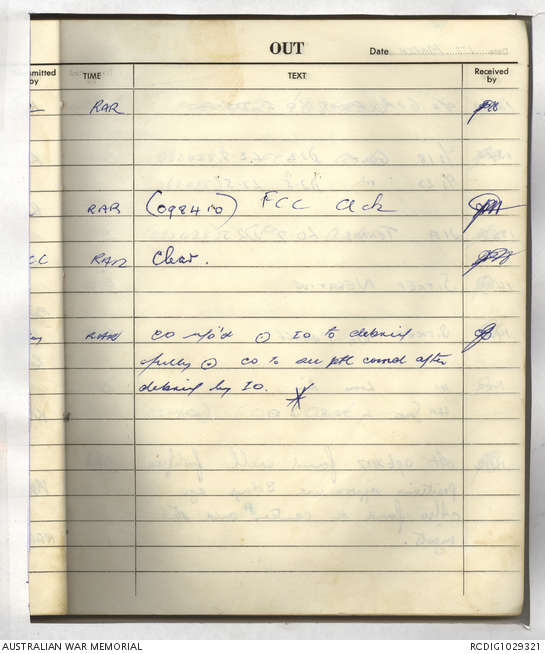 OUT
Date
mitted by
TIME
TEXT
Received by
RAR
RAR (099410) FCC Ack
CC RAR Clear.
RAR CO info'd ⊙ IO to debrief
fully ⊙ CO to see ptl comd after
debrief by IO.
AUSTRALIAN WAR MEMORIAL
RCDIG1029321